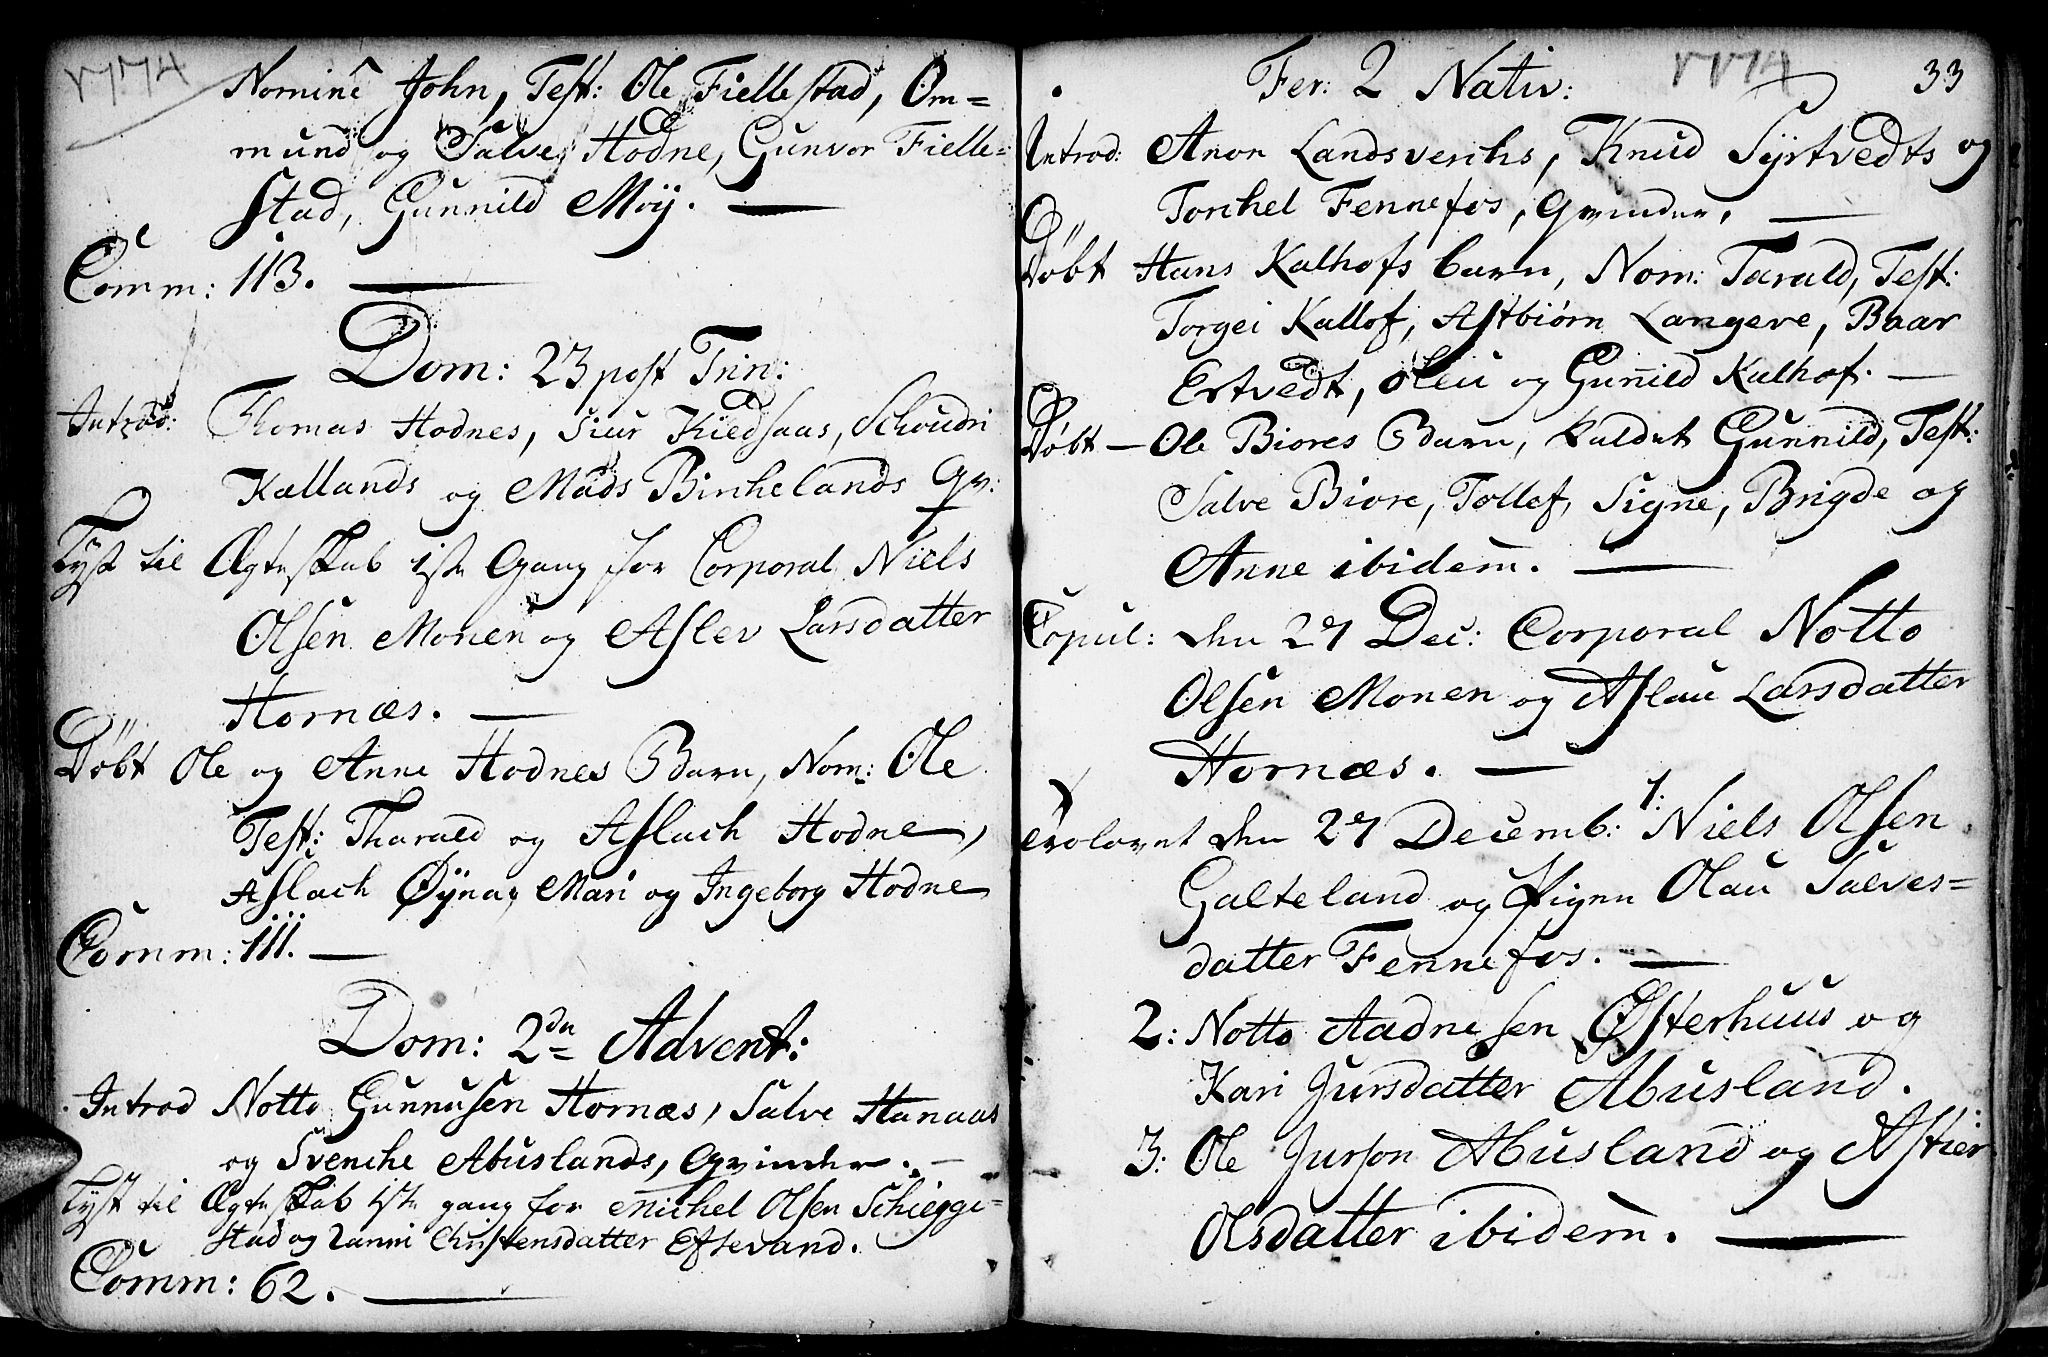 1774
Nomine John, Test: Ole Fiellestad, Om=
mund og Salve Hodne, Gunvor Fielle=
stad, Gunnild Møÿ.
Comm: 113.
Dom: 23 post Trin:
Introd: Thomas Hodnes, Siur Kiedsaas, Schoudri
Kallands og Mads Birkelands Qv:
Lyst til Ægteskab 1ste Gang for Corporal Niels
Olsen Monen og Aslev Larsdatter
Hornæs.
Døbt Ole og Anne Hodnes Barn, Nom: Ole
Test: Tharald og Aslach Hodne,
Aslach Øÿna, Mari og Ingeborg Hodne
Comm: 111.
Dom: 2den Advent:
Introd Notto Gunnusen Hornæs, Salve Hanaas
og Svenche Abuslands, Qvinder.
Lyst til Ægteskab 1ste gang for Michel Olsen Schiegge=
stad og Christensdatter Eftevand.
Comm: 62.
1774 33
Fer: 2 Nativ:
Introd: Anon Landsverchs, Knud Sÿrtvedts og
Torchel Fennefos, Qvinder.
Døbt Hans Kalhofs barn, Nom: Tarald, Test:
Torgei Kallof, Astbiørn Langeve, Baar
Ertvedt, Oleu og Gunild Kalhof.
Døbt – Ole Biores Barn, kaldet Gunnild, Test:
Salve Biore, Tollef, Signe, Brigde og
Anne ibidem.
Copul: den 27 Dec: Corporal Notto
Olsen Monen og Aslau Larsdatter
Hornæs.
Trolovet den 27 Decemb: 1: Niels Olsen
Galteland og Pigen Olau Salves=
datter Fennefos.
2: Notto Aadnesen Østerhuus og
Kari Jursdatter Abusland.
3: Ole Jurson Abusland og Astier
Olsdatter ibidem.